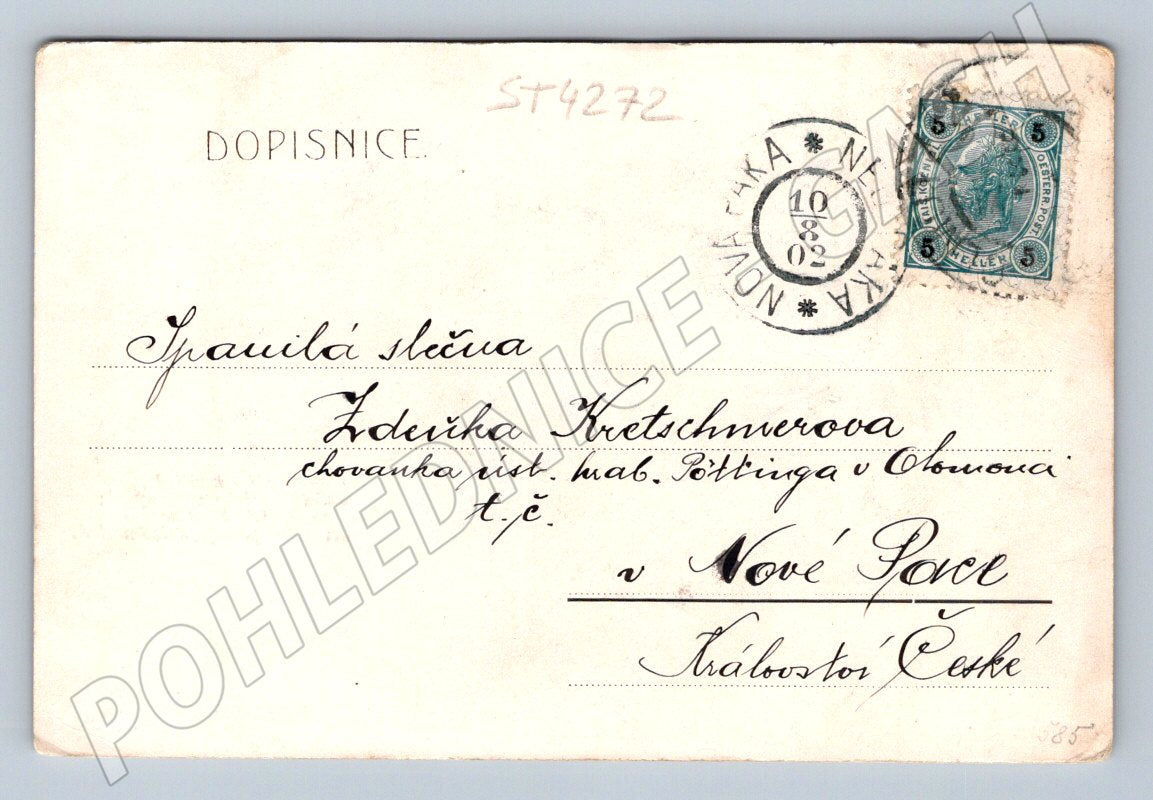 ST4272
DOPISNICE
NOVÁ PAKA * NEU PAKA *
10
8
02
5 HELLER 5
KAIS. KOEN. OESTERR. POST.
5 HELLER 5
Spanilá slečna
Zdeňka Kretschmerova
chovanka úst. hrab. Pöttinga v Olomouci
t. č.
v Nové Pace
Království České
585
POHLEDNICE CASH